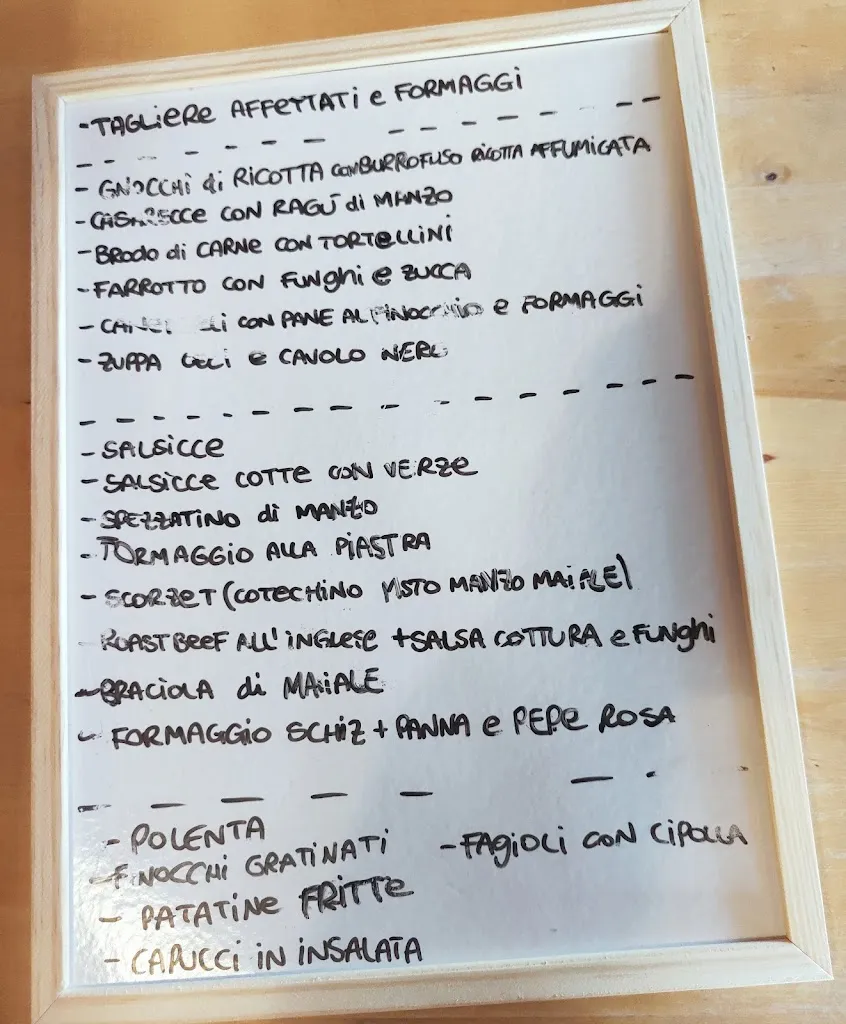 - TAGLIERE AFFETTATI e FORMAGGI
- GNOCCHI di RICOTTA CON BURRO FUSO RICOTTA AFFUMICATA
- CASARECCE CON RAGÙ di MANZO
- BRODO di CARNE CON TORTELLINI
- FARROTTO CON FUNGHI e ZUCCA
- CON PANE AL FINOCCHIO e FORMAGGI
- ZUPPA CECI e CAVOLO NERO
- SALSICCE
- SALSICCE COTTE CON VERZE
- SPEZZATINO di MANZO
- FORMAGGIO ALLA PIASTRA
- SCORZET (COTECHINO MISTO MANZO MAIALE)
ROASTBEEF ALL'INGLESE + SALSA COTTURA e FUNGHI
- BRACIOLA di MAIALE
- FORMAGGIO SCHIZ + PANNA e PEPE ROSA
- POLENTA
- FINOCCHI GRATINATI
- FAGIOLI CON CIPOLLA
- PATATINE FRITTE
- CAPUCCI IN INSALATA